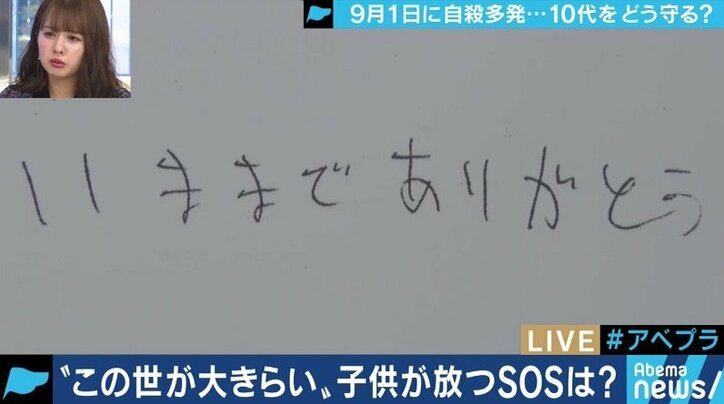 9月1日に自殺多発…10代をどう守る?
いままでありがとう
LIVE #アベプラ
〝この世が大きらい〟子供が放つSOSは?
Abema
news/